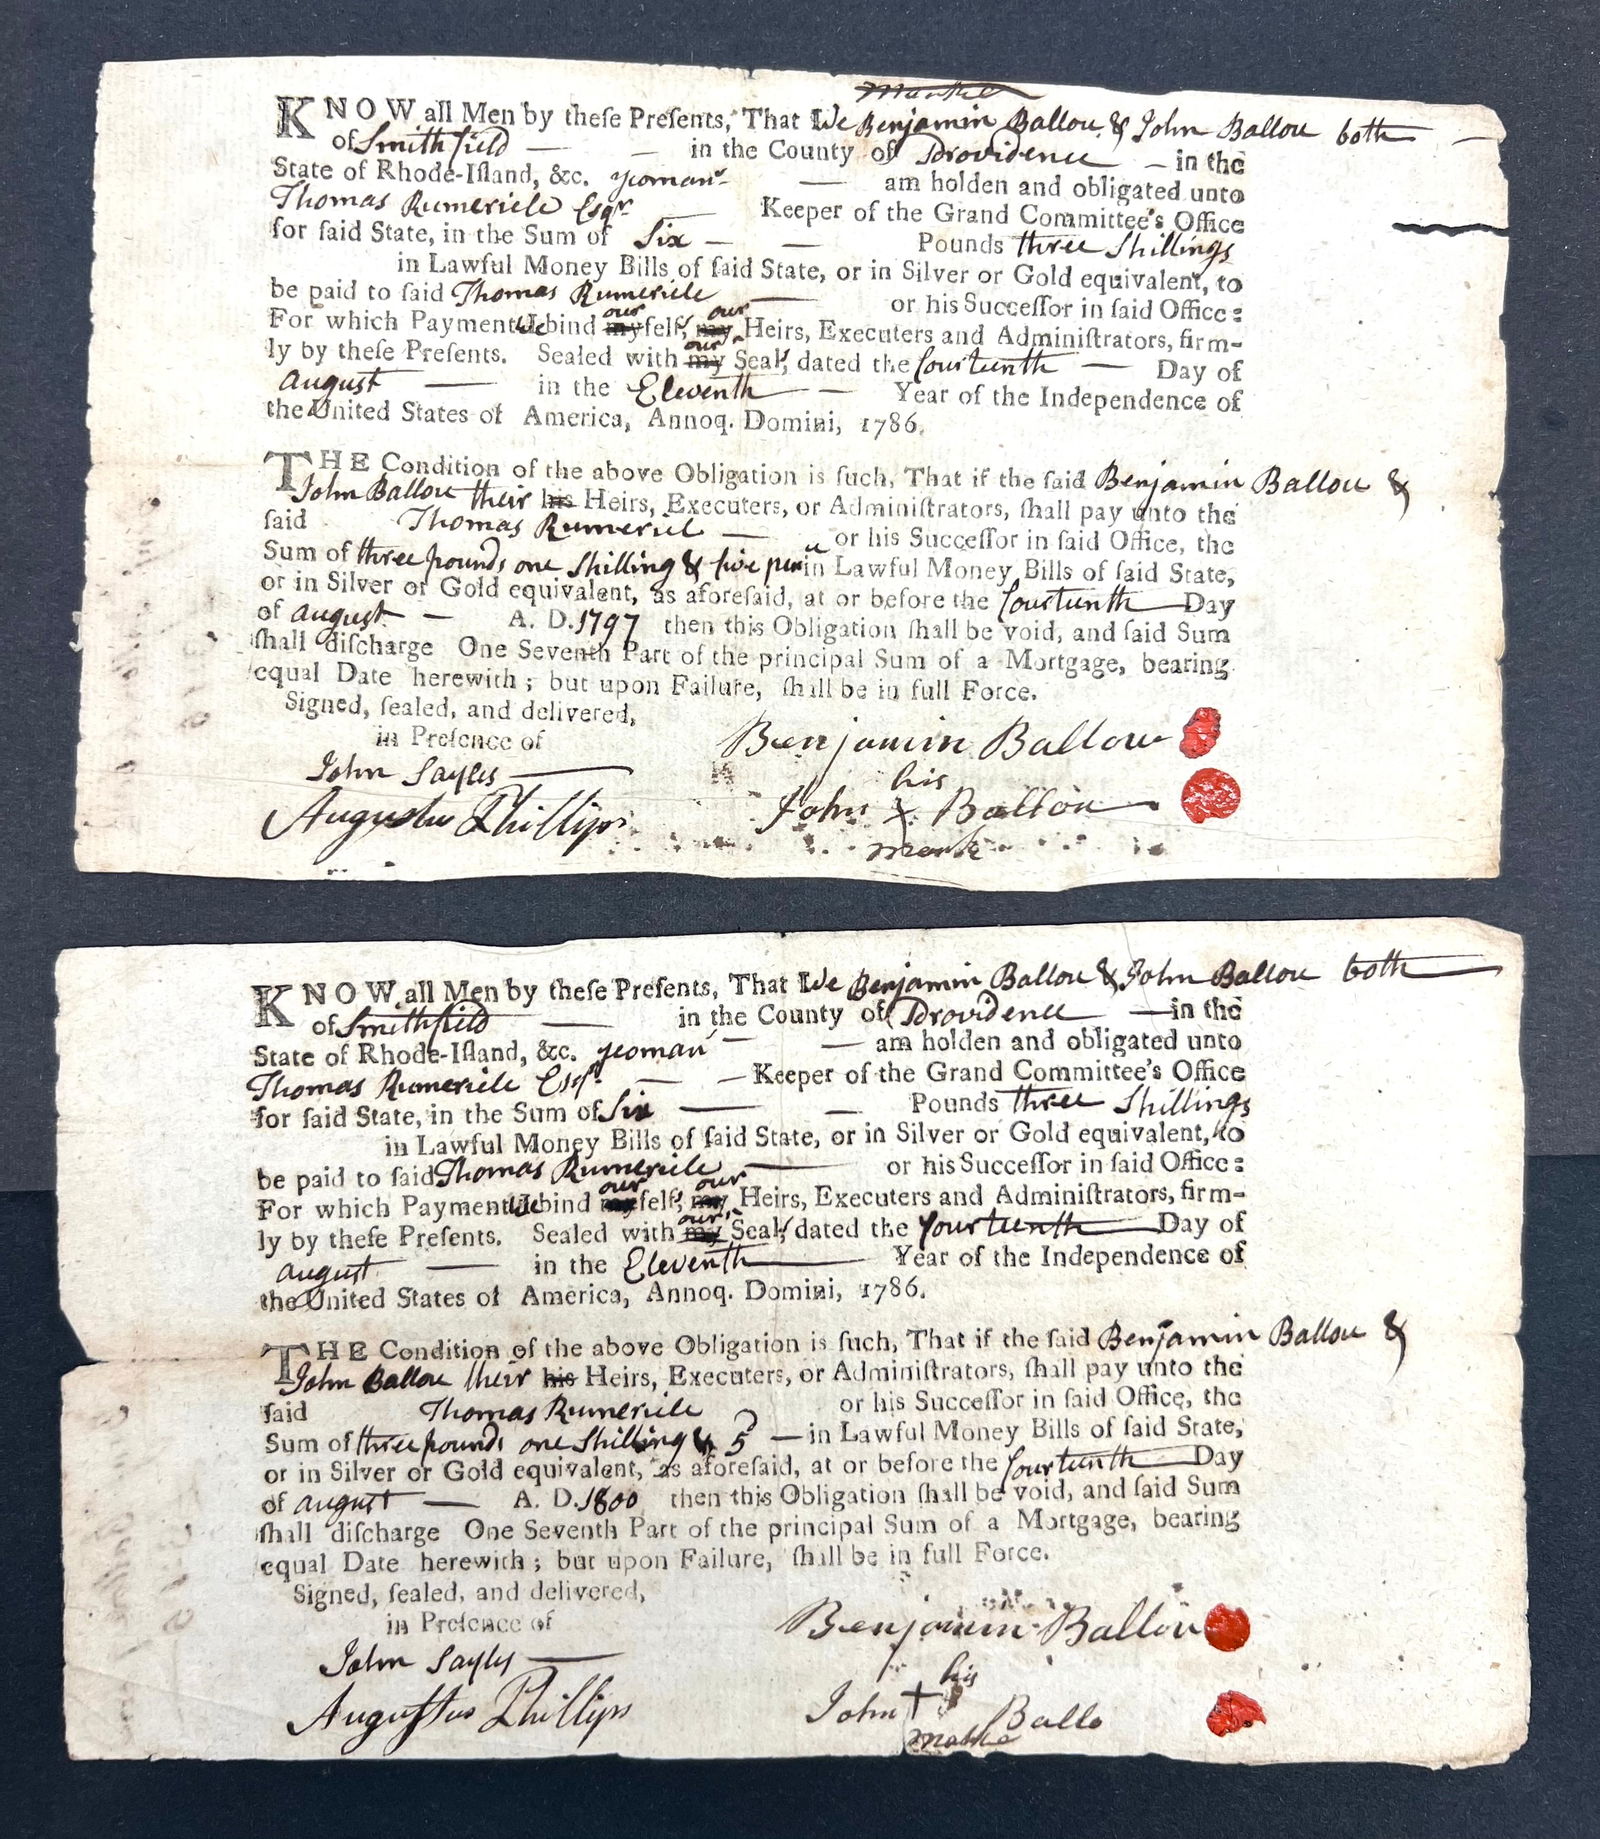 KNOW all Men by theſe Preſents, That We Benjamin Ballou & John Ballou both
of Smithfield — — in the County of Providence — in the
State of Rhode-Iſland, &c. yeomans — am holden and obligated unto
Thomas Rumerill Esqr — Keeper of the Grand Committee's Office
for ſaid State, in the Sum of Six — — Pounds three Shillings
in Lawful Money Bills of ſaid State, or in Silver or Gold equivalent, to
be paid to ſaid Thomas Rumerill — or his Succeſſor in ſaid Office:
our our
For which Payment We bind myſelf, my Heirs, Executers and Adminiſtrators, firm-
our
ly by theſe Preſents. Sealed with my Seals, dated the fourteenth — Day of
august — in the Eleventh — Year of the Independence of
the United States of America, Annoq. Domini, 1786.
THE Condition of the above Obligation is ſuch, That if the ſaid Benjamin Ballou &
John Ballou their his Heirs, Executers, or Adminiſtrators, ſhall pay unto the
ſaid Thomas Rumerill — or his Succeſſor in ſaid Office, the
Sum of three pounds one Shilling & five pence in Lawful Money Bills of ſaid State,
or in Silver or Gold equivalent, as aforeſaid, at or before the fourteenth — Day
of august — A. D. 1797 then this Obligation ſhall be void, and ſaid Sum
ſhall diſcharge One Seventh Part of the principal Sum of a Mortgage, bearing
equal Date herewith; but upon Failure, ſhall be in full Force.
Signed, ſealed, and delivered,
in Preſence of
John Sayles —
Augustus Phillips
Benjamin Ballou
his
John X Ballou
mark
KNOW all Men by theſe Preſents, That We Benjamin Ballou & John Ballou both
of Smithfield — in the County of Providence — in the
State of Rhode-Iſland, &c. yeoman — — am holden and obligated unto
Thomas Rumerill Esqr — — Keeper of the Grand Committee's Office
for ſaid State, in the Sum of Six — — Pounds three Shillings
in Lawful Money Bills of ſaid State, or in Silver or Gold equivalent, to
be paid to ſaid Thomas Rumerill — or his Succeſſor in ſaid Office:
our our
For which Payment We bind myſelf, my Heirs, Executers and Adminiſtrators, firm-
our
ly by theſe Preſents. Sealed with my Seals, dated the fourteenth — Day of
august — in the Eleventh — Year of the Independence of
the United States of America, Annoq. Domini, 1786.
THE Condition of the above Obligation is ſuch, That if the ſaid Benjamin Ballou &
John Ballou their his Heirs, Executers, or Adminiſtrators, ſhall pay unto the
ſaid Thomas Rumerill or his Succeſſor in ſaid Office, the
Sum of three pounds one Shilling & 5 — in Lawful Money Bills of ſaid State,
or in Silver or Gold equivalent, as aforeſaid, at or before the fourteenth — Day
of august — A. D. 1800 then this Obligation ſhall be void, and ſaid Sum
ſhall diſcharge One Seventh Part of the principal Sum of a Mortgage, bearing
equal Date herewith; but upon Failure, ſhall be in full Force.
Signed, ſealed, and delivered,
in Preſence of
John Sayles —
Auguſtus Phillips
Benjamin Ballou
his
John + Ballo
mark